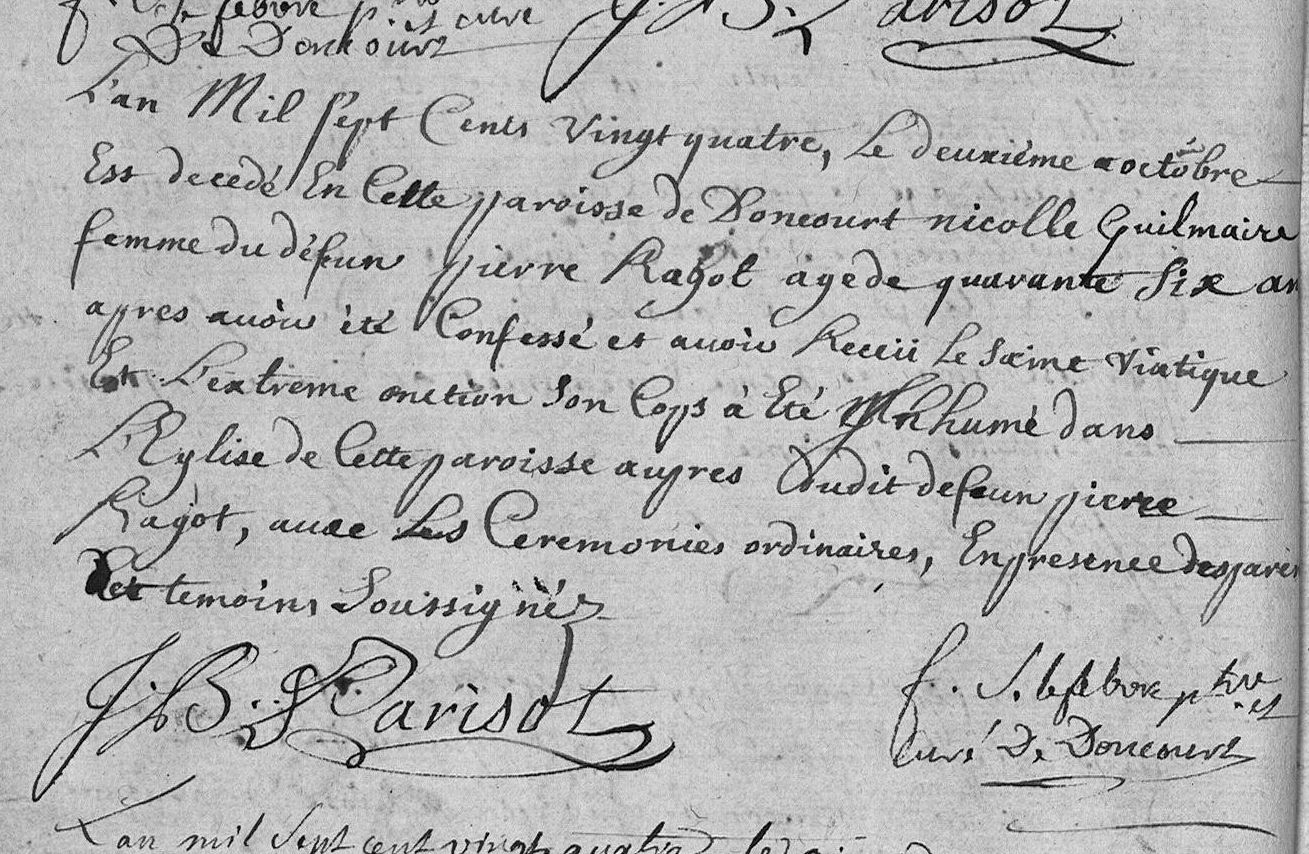 f. S. lefebvre ptre et curé
De Doncourt
J. B. Parisot
L'an Mil Sept Cents vingt quatre, Le deuxiéme octobre
Est decedé En Cette paroisse de Doncourt nicolle Guilmaire
femme du défun pierre Ragot agede quarante Six an
apres auoir été Confessé et auoir Receü Le Saint Viatique
Et L'extreme onction Son Cops à Eté Inhumé dans
L'Eglise de Cette paroisse aupres dudit defeun pierre
Ragot, auec Les Ceremonies ordinaires, En presence des
temoins Soussignéz
J. B. Parisot
f. S. lefebvre ptre et
Curé De Doncourt
L'an mil Sept cent vingt quatre le